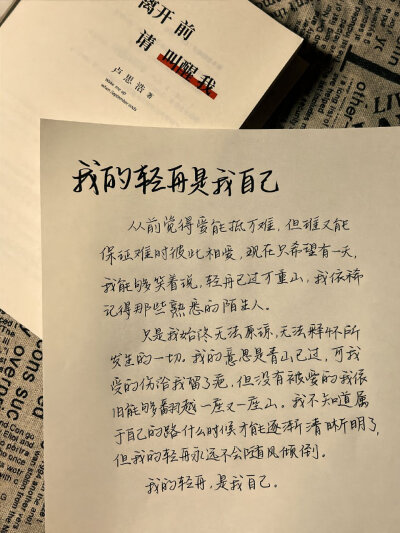 离开前
请 叫醒我
卢思浩 著
wake me up
when september ends
我的轻舟是我自己
从前觉得爱能抵万难，但谁又能
保证难时彼此相爱，现在只希望有一天，
我能够笑着说，轻舟已过万重山，我依稀
记得那些熟悉的陌生人。
只是我始终无法原谅，无法释怀所
发生的一切。我的意思是青山已过，可我
受的伤给我留了疤，但没有被爱的我依
旧能够翻越一座又一座山。我不知道属
于自己的路什么时候才能逐渐清晰明了，
但我的轻舟永远不会随风倾倒。
我的轻舟，是我自己。